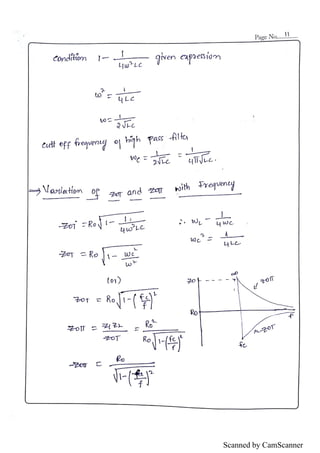 Page No. 11
Condition 1 - 1/(4ω²LC) given expression
ω² = 1/(4LC)
ω = 1/(2√LC)
Cutt off frequency of high pass filter
ωc = 1/(2√LC) = 1/(4π√LC).
→ Variation of ZOT and ZOπ with Frequency
ZOT = Ro√(1 - 1/(4ω²LC)) ∴ ωc = 1/(4ωc)
ZOT = Ro√(1 - ωc²/ω²) ωc² = 1/(4LC)
(or)
ZOT = Ro√(1-(fc/f)²)
ZOπ = Z1Z2/ZOT = Ro²/(Ro√(1-(fc/f)²))
ZOπ = Ro/√(1-(fc/f)²)
Zo ∞ ZOπ
Ro f
ZOT
fc
Scanned by CamScanner